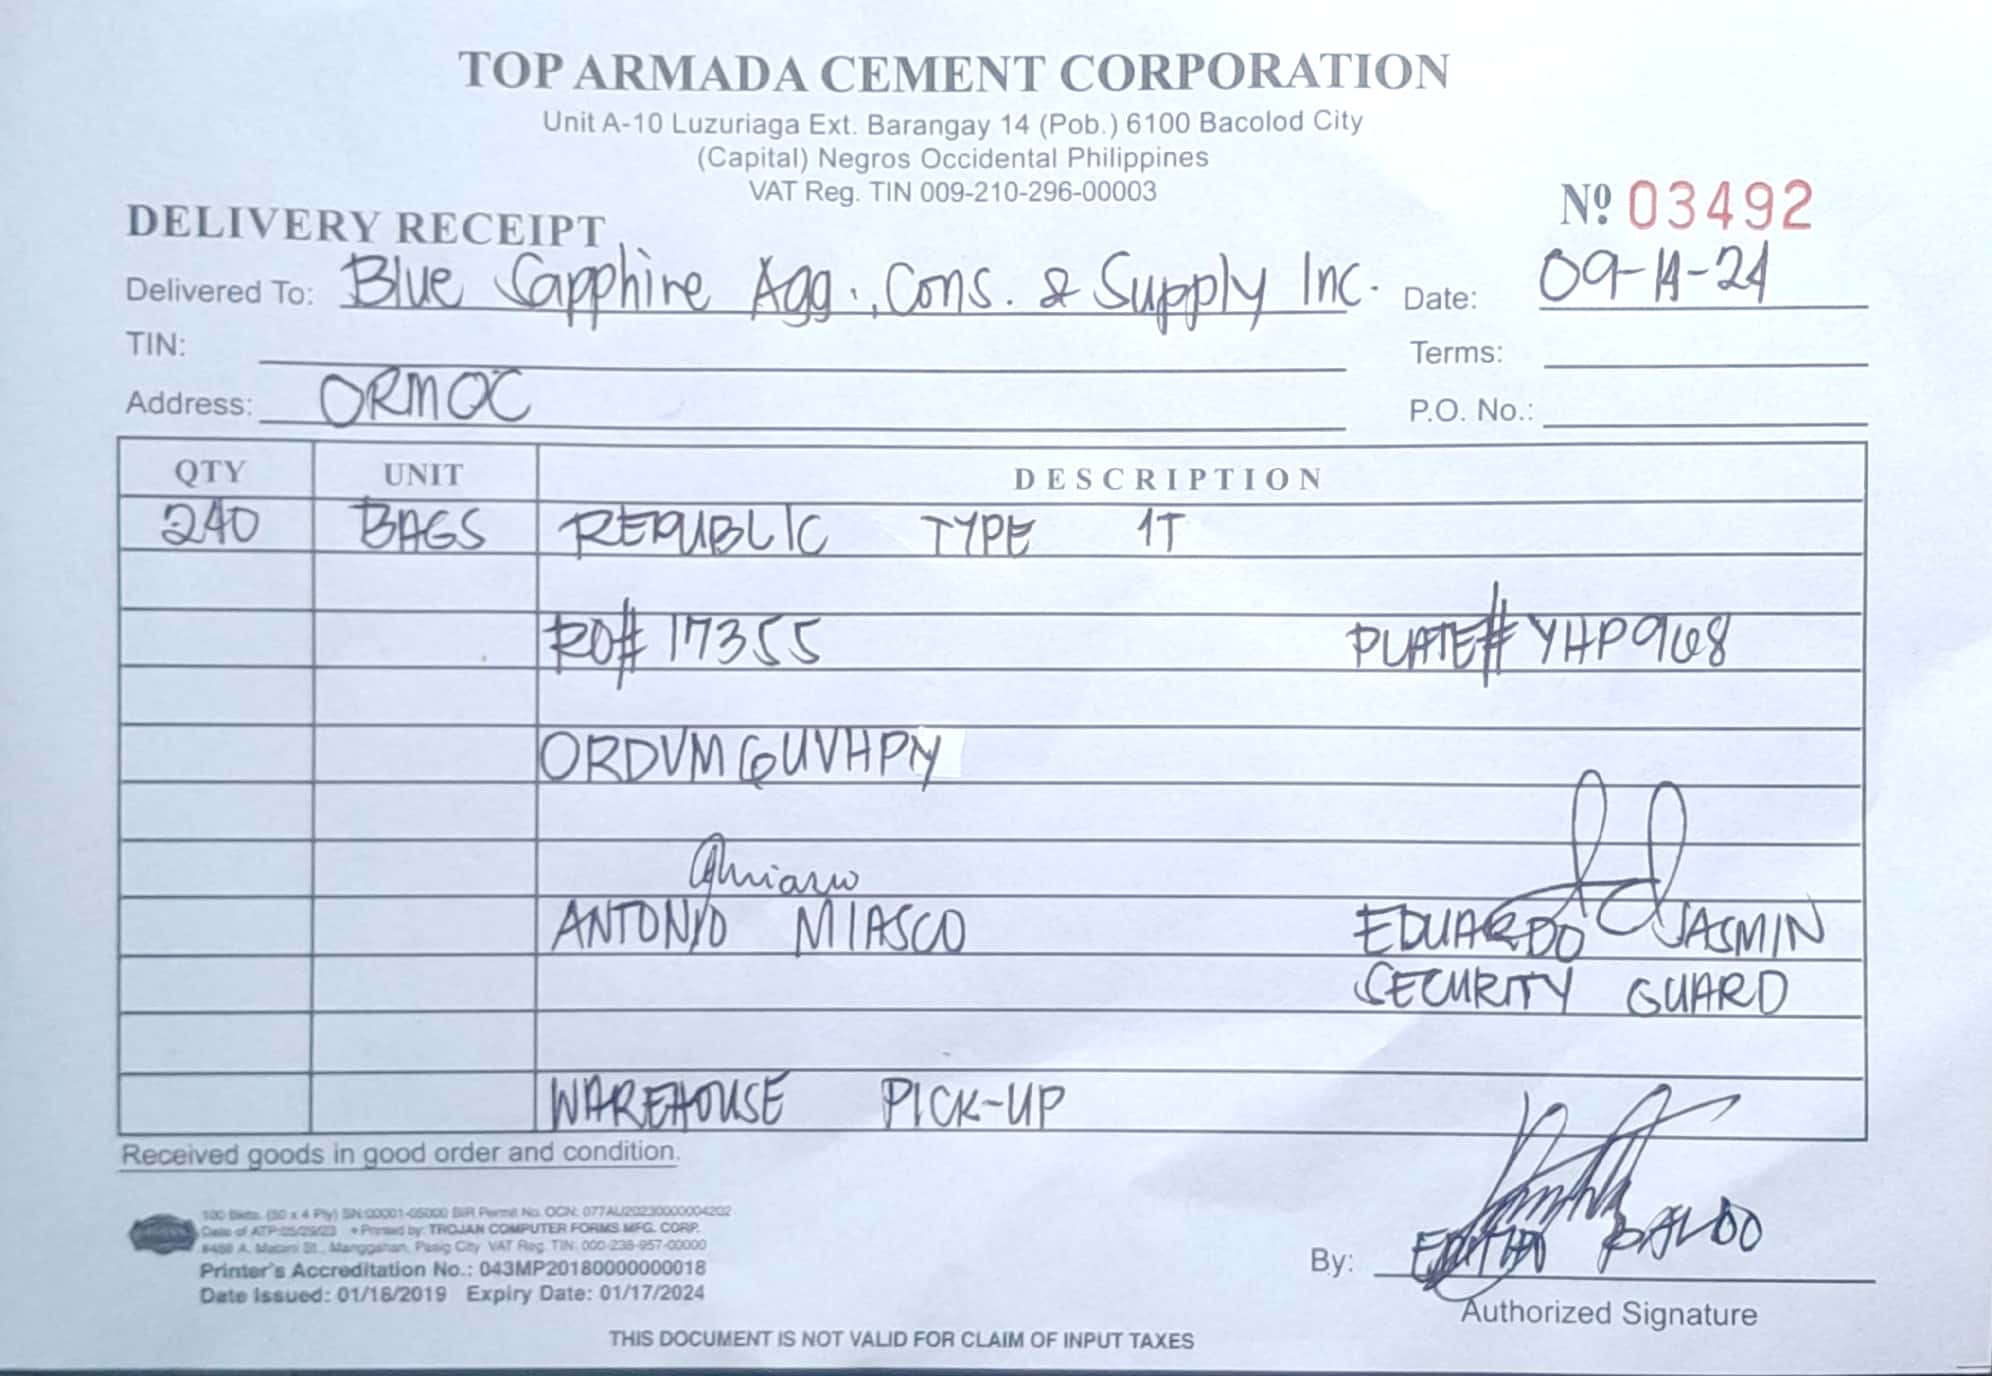 TOP ARMADA CEMENT CORPORATION
Unit A-10 Luzuriaga Ext. Barangay 14 (Pob.) 6100 Bacolod City
(Capital) Negros Occidental Philippines
VAT Reg. TIN 009-210-296-00003
Nº 03492
DELIVERY RECEIPT
Delivered To: Blue Sapphire Agg., Cons. & Supply Inc. Date: 09-14-24
TIN: Terms:
Address: ORMOC P.O. No.:
QTY UNIT DESCRIPTION
240 BAGS REPUBLIC TYPE 1T
RO# 17355 PLATE# YHP968
ORDVM6UVHPN
ANTONIO MIASCO EDUARDO JASMIN
SECURITY GUARD
WAREHOUSE PICK-UP
Received goods in good order and condition.
100 Bklts. (50 x 4 Ply) SN:00001-05000 BIR Permit No. OCN: 077AU20230000004202
Date of ATP:05/29/23 • Printed by: TROJAN COMPUTER FORMS MFG. CORP.
Manggahan, Pasig City VAT Reg. TIN: 000-238-957-00000
Printer's Accreditation No.: 043MP20180000000018
Date Issued: 01/18/2019 Expiry Date: 01/17/2024
By: BALDO
Authorized Signature
THIS DOCUMENT IS NOT VALID FOR CLAIM OF INPUT TAXES